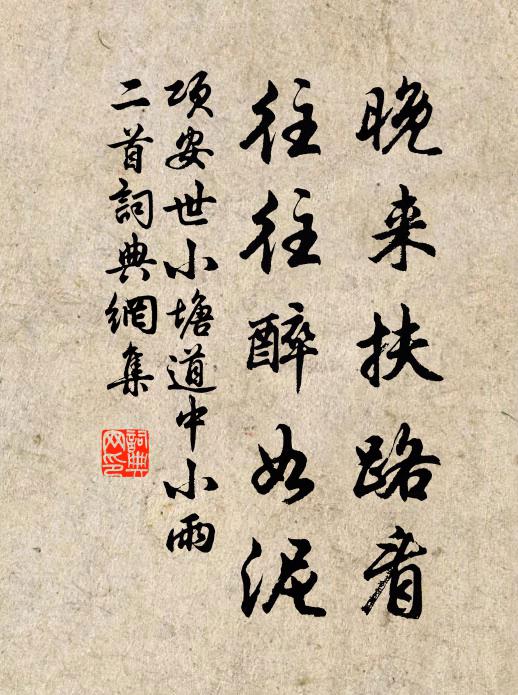 晚来扶路者
往往醉如泥
项安世小塘道中小雨
二首詞典網集
詞典
网印